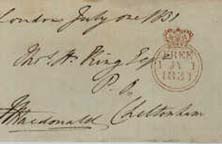 London July one 1831
Thos. H. King Esqr
P. O.
Cheltenham
JMacdonald
FREE
1 JY 1
1831